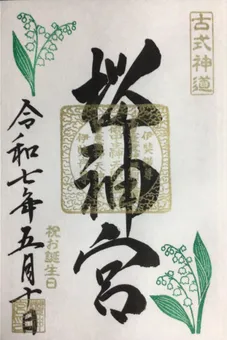 古式神道
桜神宮
令和七年五月十日
祝お誕生日